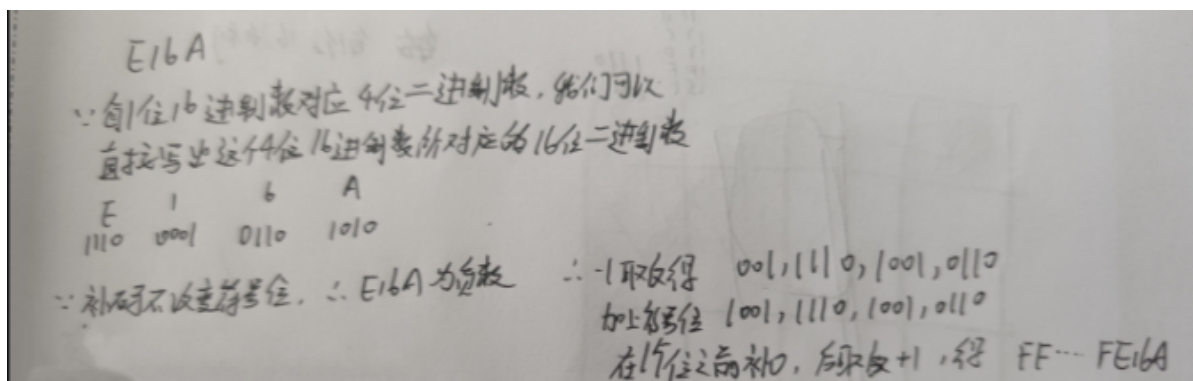 E16A
∵ 每1位16进制数对应4位二进制数，我们可以
直接写出这个4位16进制数所对应的16位二进制数
E 1 6 A
1110 0001 0110 1010
∵ 补码不改变符号位，∴ E16A为负数 ∴ -1取反得 001,1110,1001,0110
加上符号位 1001,1110,1001,0110
在15位之前补0，后取反+1，得 FF… FE16A